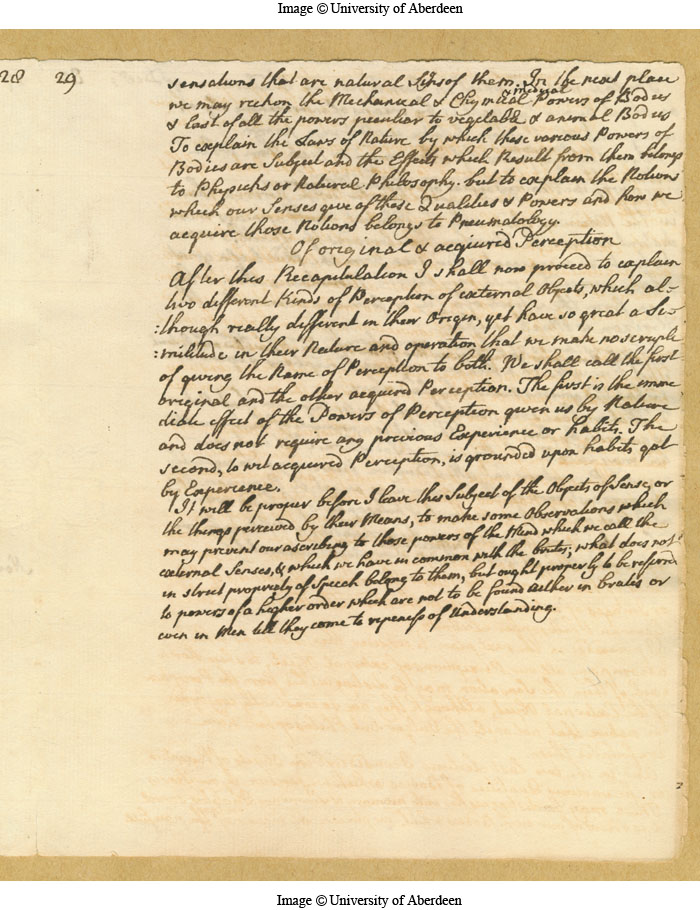 Image © University of Aberdeen
28 29
sensations that are natural Signs of them. In the next place
we may reckon the Mechanical & Chymical & medical Powers of Bodies
& last of all the powers peculiar to vegetable & animal Bodies
To explain the Laws of Nature by which these various Powers of
Bodies are Subject and the Effects which Result from them belongs
to Physicks or Natural Philosophy. but to explain the Notions
which our Senses give of these Qualities & Powers and how we
acquire those Notions belongs to Pneumatology.
Of original & acquired Perception
After this Recapitulation I shall now proceed to explain
two different Kinds of Perception of external Objects, which al-
:though really different in their Origin, yet have so great a Si-
:militude in their Nature and operation that we make no scruple
of giving the Name of Perception to both. We shall call the first
original and the other acquired Perception. The first is the imme
diate effect of the Powers of Perception given us by Nature
and does not require any previous Experience or habits. The
second, to wit acquired Perception, is grounded upon habits got
by Experience.
It will be proper before I leave this Subject of the Objects of Sense, or
the things perceived by their Means, to make some Observations which
may prevent our ascribing to those powers of the Mind which we call the
external Senses, & which we have in common with the brutes, what does not
in strict propriety of Speech belong to them, but ought properly to be referred
to powers of a higher order which are not to be found either in brutes or
even in Men till they come to ripeness of Understanding.
Image © University of Aberdeen